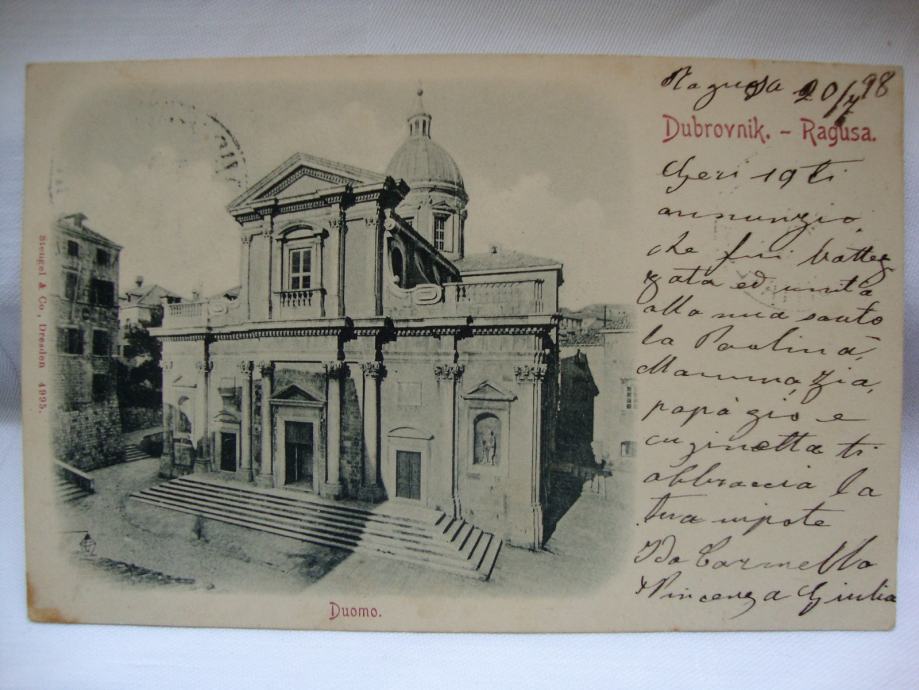 Ragusa 20/7 98
Dubrovnik. - Ragusa.
Jeri 19 ti
annunzio,
che fui batteg
zata ed unita
alla mia santo
la Paolina,
Mamma, Zia,
papà, gio e
cuginetta ti
abbraccia la
tua nipote
Ida Carmella
Vincenza Giulia
Stengel & Co., Dresden 4995.
Duomo.